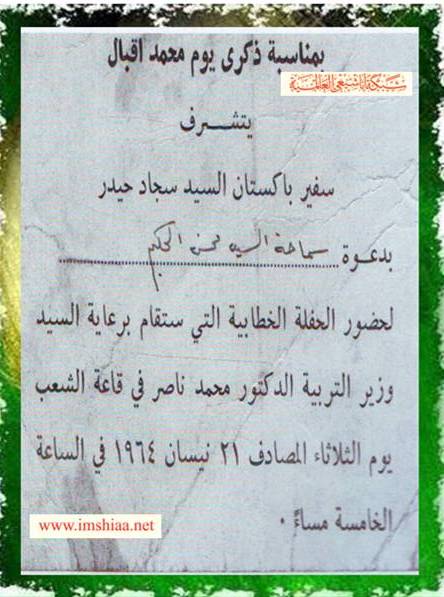 بمناسبة ذكرى يوم محمد اقبال
شبكة انا شيعي العالمية
يتشرف
سفير باكستان السيد سجاد حيدر
بدعوة سماحة السيد محسن الحكيم
لحضور الحفلة الخطابية التي ستقام برعاية السيد
وزير التربية الدكتور محمد ناصر في قاعة الشعب
يوم الثلاثاء المصادف ٢١ نيسان ١٩٦٤ في الساعة
الخامسة مساءً ٠
www.imshiaa.net